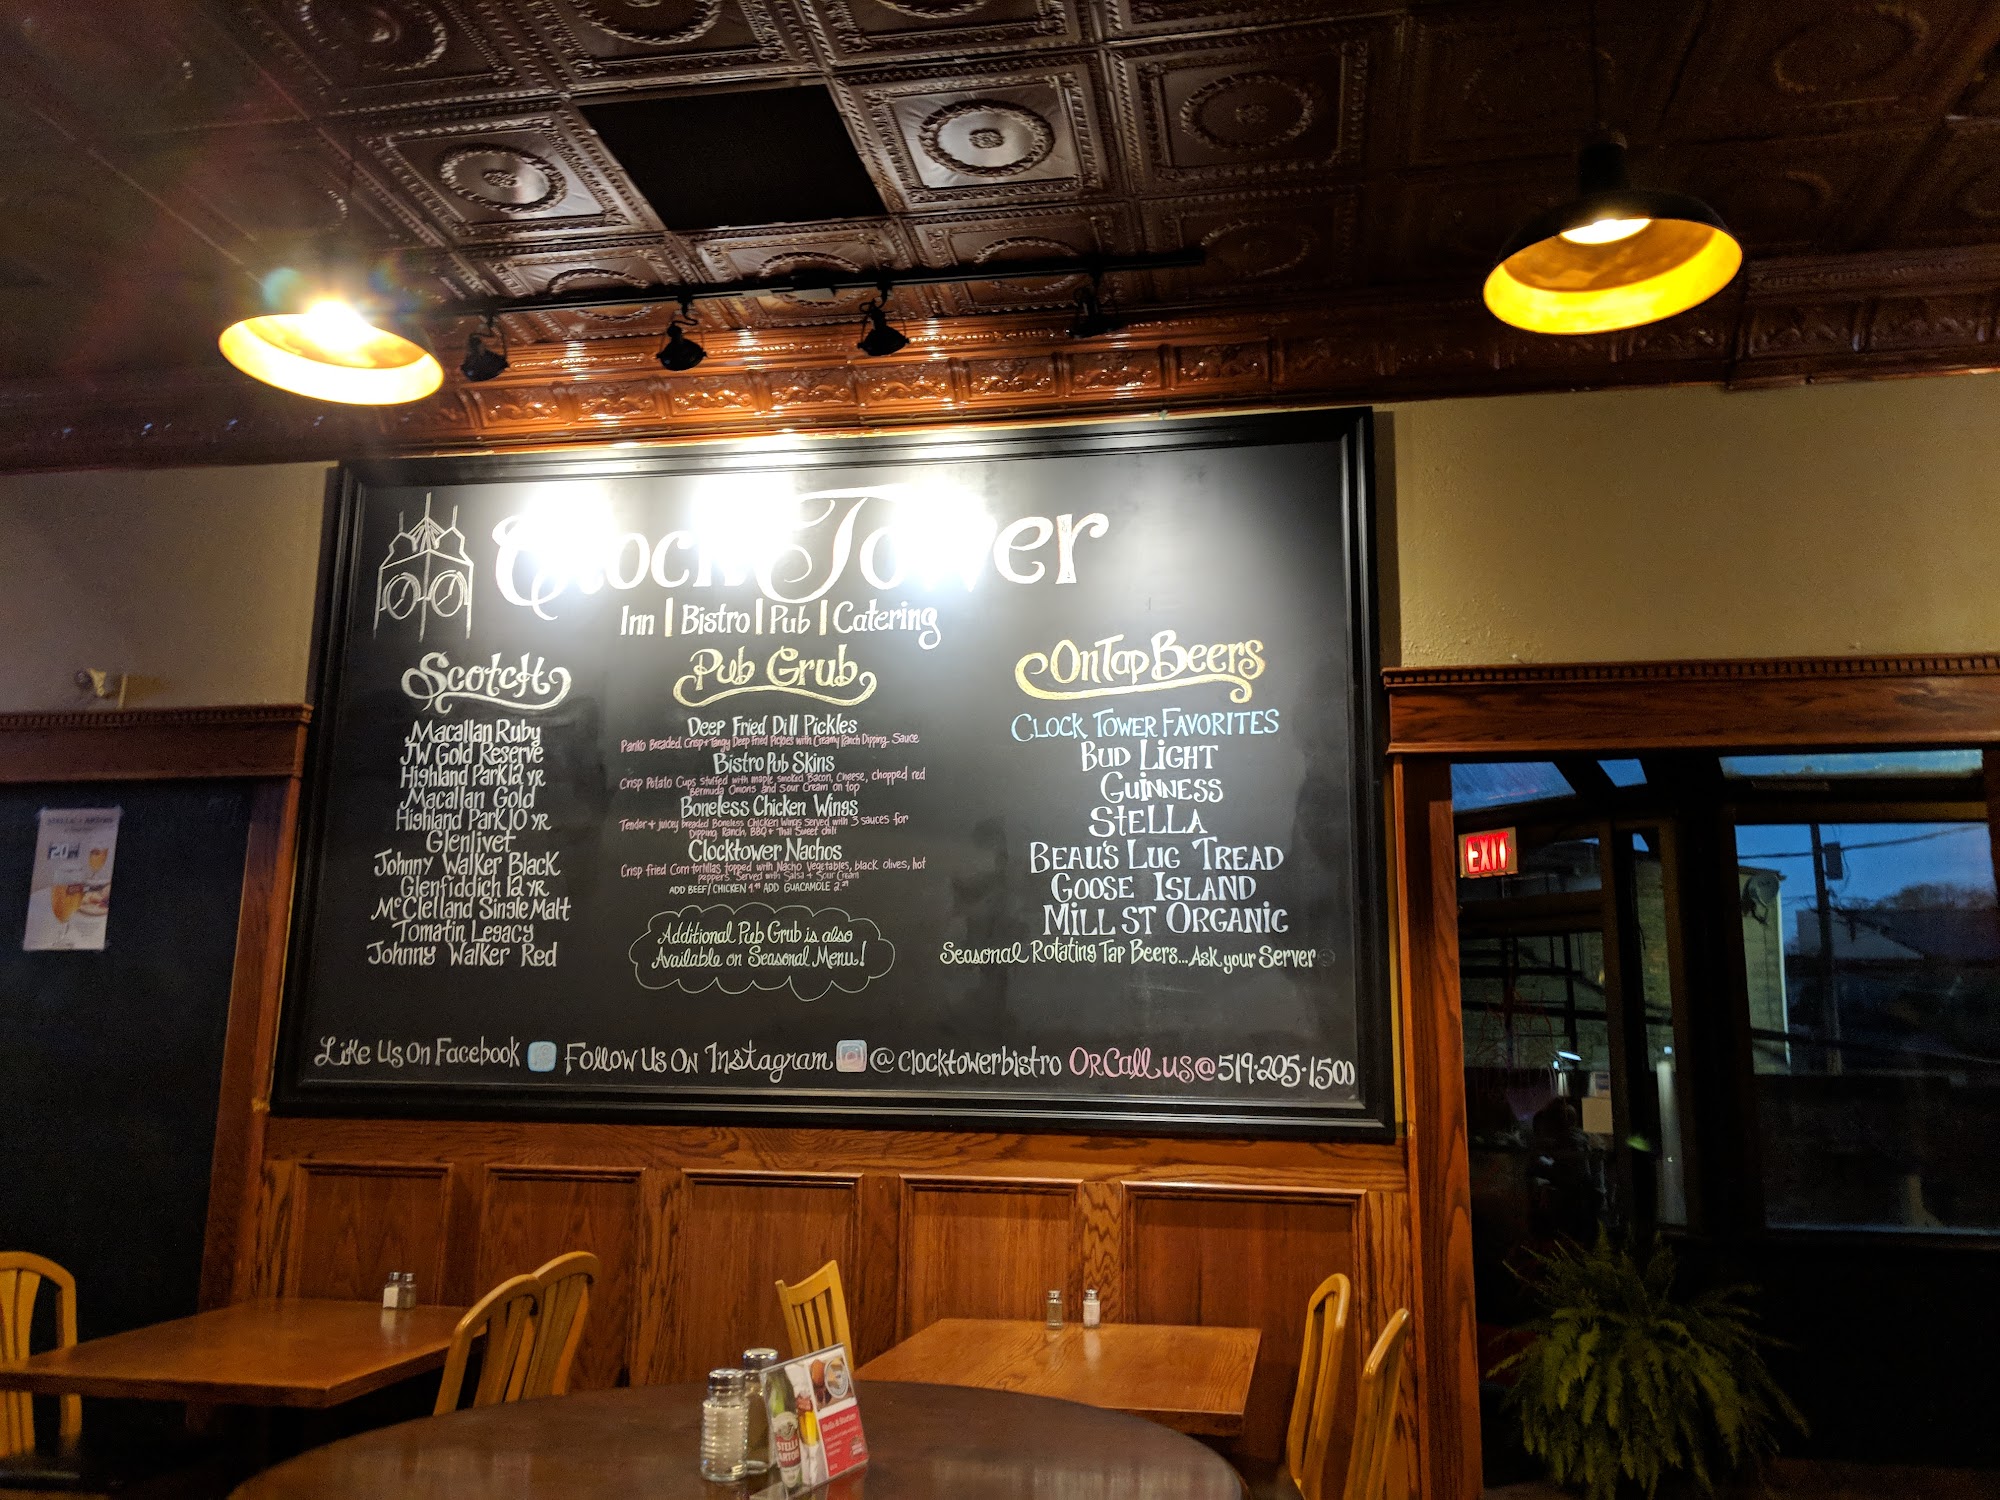 Clock Tower
Inn | Bistro | Pub | Catering
Scotch
Macallan Ruby
JW Gold Reserve
Highland Park 12 YR
Macallan Gold
Highland Park 10 YR
Glenlivet
Johnny Walker Black
Glenfiddich 12 YR
McClelland Single Malt
Tomatin Legacy
Johnny Walker Red
Pub Grub
Deep Fried Dill Pickles
Panko Breaded Crisp + Tangy Deep Fried Pickles with Creamy Ranch Dipping Sauce
Bistro Pub Skins
Crisp Potato Cups stuffed with maple smoked Bacon, Cheese, chopped red
Bermuda Onions and Sour Cream on top
Boneless Chicken Wings
Tender + juicy breaded Boneless Chicken Wings served with 3 sauces for
Dipping Ranch, BBQ + Thai Sweet chili
Clocktower Nachos
Crisp Fried Corn tortillas topped with Nacho Vegetables, black olives, hot
peppers. Served with Salsa + Sour Cream
ADD BEEF/CHICKEN 4.99 ADD GUACAMOLE 2.29
Additional Pub Grub is also
Available on Seasonal Menu!
On Tap Beers
CLOCK TOWER FAVORITES
BUD LIGHT
GUINNESS
STELLA
BEAU'S LUG TREAD
GOOSE ISLAND
MILL ST ORGANIC
Seasonal Rotating Tap Beers... Ask your Server
Like Us On Facebook Follow Us On Instagram @clocktowerbistro Or Call us @ 519.205.1500
EXIT
STELLA ARTOIS